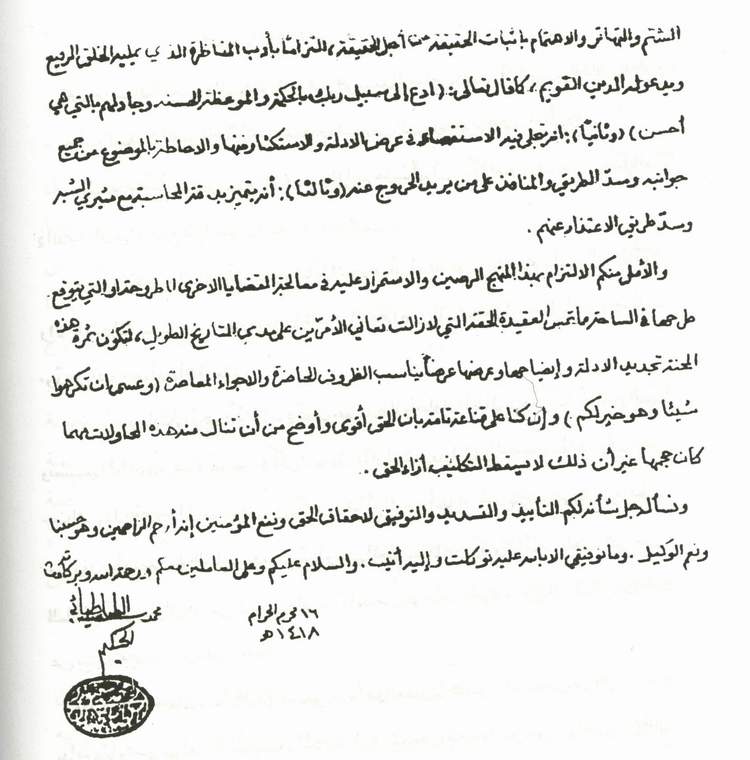 الشتم والتهاتر والاهتمام بإثبات الحقيقة من أجل الحقيقة، التزاماً بأدب المناظرة الذي يمليه الخلق الرفيع
ويدعو له الدين القويم، كما قال تعالى: (ادع إلى سبيل ربك بالحكمة والموعظة الحسنة وجادلهم بالتي هي
أحسن) (وثانياً): انه تجلى فيه الاستقصاء في عرض الادلة والاستكثار منها والاحاطة بالموضوع من جميع
جوانبه وسدّ الطريق والمنافذ على من يريد الخروج عنه (وثالثاً): أنه يتميز بدقة المحاسبة مع مثيري الشبه
وسدّ طريق الاعتذار عنهم.
والأمل منكم الالتزام بهذا المنهج الرصين والاستمرار عليه في معالجة القضايا الاخرى المطروحة او التي يتوقع
طرحها في الساحة مما تمس العقيدة الحقة التي لازالت تعاني الأمرّين على مدى التاريخ الطويل، لتكون ثمرة هذه
المحنة تجديد الادلة وإيضاحها وعرضها عرضاً يناسب الظروف الحاضرة والاجواء المعاصرة (وعسى ان تكرهوا
شيئا وهو خير لكم) وإن كنا على قناعة تامة بان الحق أقوى وأوضح من أن تنال منه هذه المحاولات مهما
كان حجمها غير أن ذلك لا يسقط التكليف أزاء الحق.
ونسأله جل شأنه لكم التأييد والتسديد والتوفيق لاحقاق الحق ونفع المؤمنين إنه أرحم الراحمين وهو حسبنا
ونعم الوكيل. وما توفيقي الا بالله عليه توكلت وإليه أنيب. والسلام عليكم وعلى العاملين معكم ورحمة الله وبركاته
١٦ محرم الحرام
١٤١٨هـ
محمد سعيد الطباطبائي
الحكيم